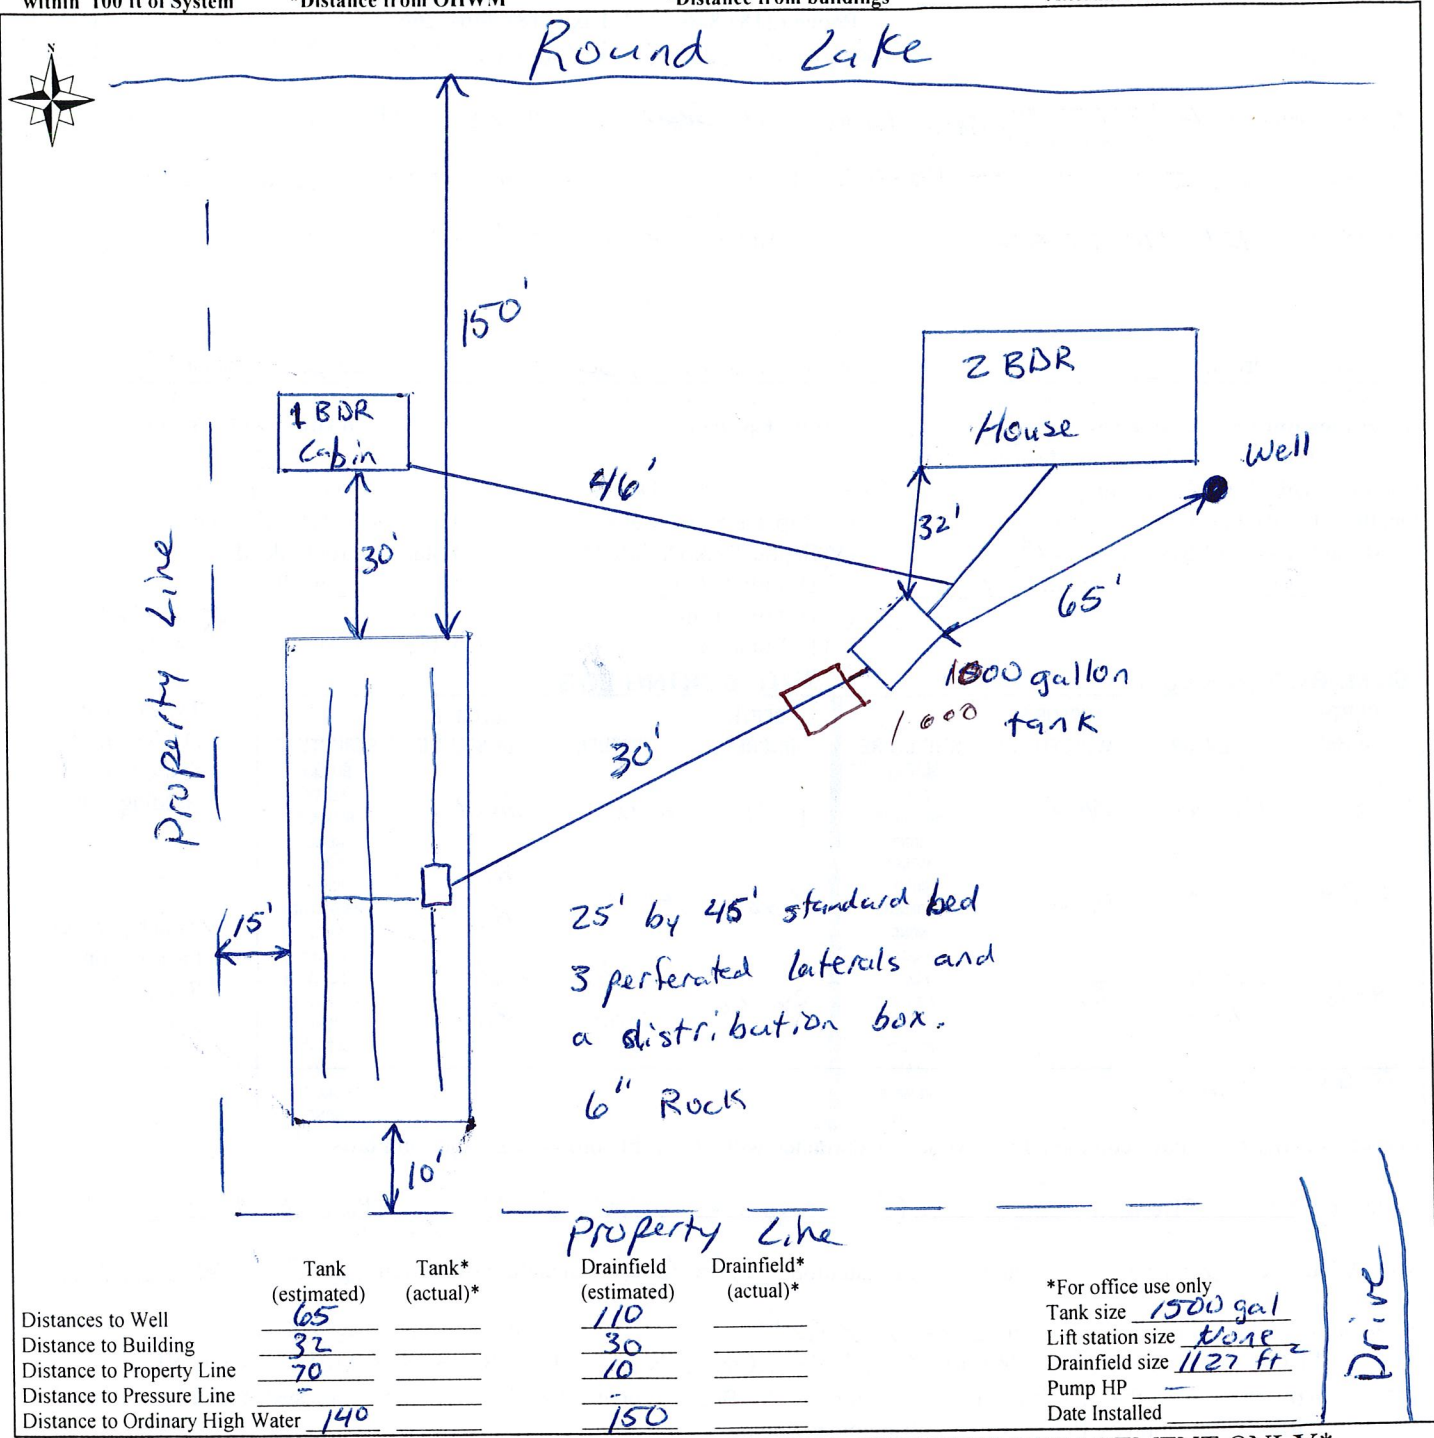 within 100 ft of System *Distance from OHWM Distance from buildings
N
Round Lake
150'
2 BDR
House
1 BDR
Cabin
Well
46'
32'
30'
65'
Property Line
1000 gallon
1000 tank
30'
15'
25' by 45' standard bed
3 perferated laterals and
a distribution box.
6" Rock
10'
Property Line
Drive
Tank Tank* Drainfield Drainfield*
(estimated) (actual)* (estimated) (actual)*
Distances to Well 65 110
Distance to Building 32 30
Distance to Property Line 70 10
Distance to Pressure Line - -
Distance to Ordinary High Water 140 150
*For office use only
Tank size 1500 gal
Lift station size None
Drainfield size 1127 ft²
Pump HP —
Date Installed